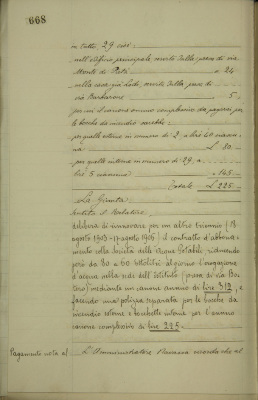 668
in tutto 29 cioè:
nell'edificio principale munito della presa di via
Monte di Pietà n. 24
nella casa già Lode munita della presa di
via Barbaroux " 5
per cui il canone annuo complessivo da pagarsi per
le bocche da incendio sarebbe:
per quelle esterne in numero di 2 a lire 40 ciascuna
na L. 80.
per quelle interne in numero di 29 a
lire 5 ciascuna " 145.
Totale L. 225.
La Giunta
sentito il Relatore
delibera di rinnovare per un altro triennio (18
agosto 1903 - 17 agosto 1906) il contratto d'abbona-
mento colla Società delle Acque Potabili, aumentando
però da 80 a 60 ettolitri al giorno l'erogazione
d'acqua nella sede dell'Istituto (presa di via Bo-
tero) mediante un canone annuo di lire 312, e
facendo una polizza separata per le bocche da
incendio esterne e bocchette interne per l'annuo
canone complessivo di lire 225.
Pagamento nota al
L'Amministratore
che al